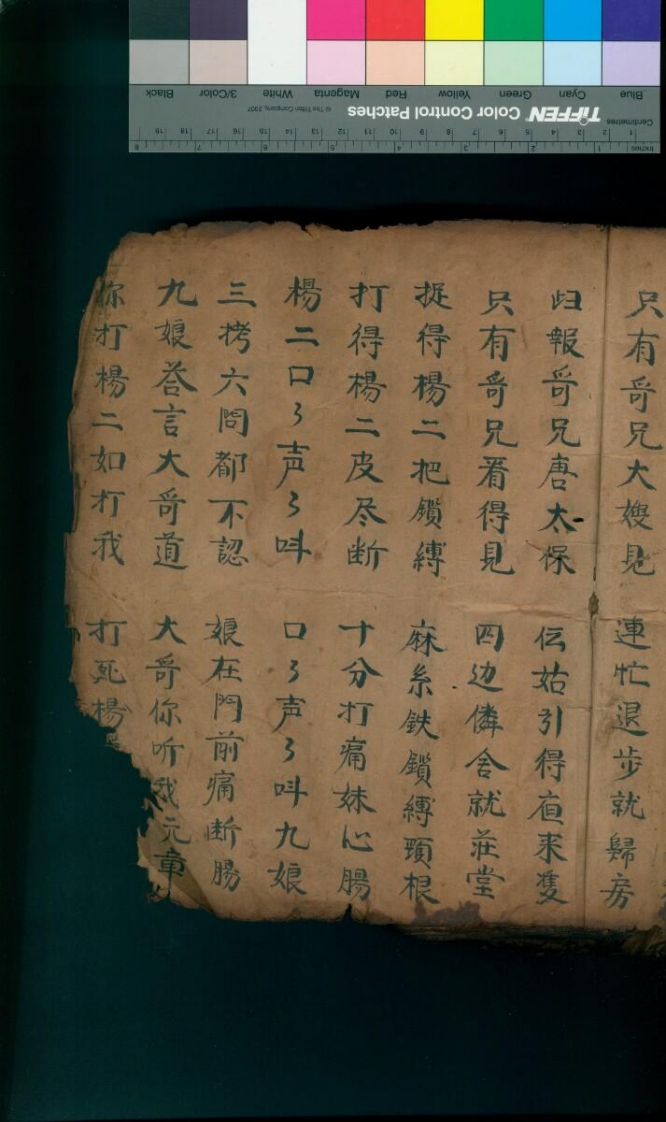 Blue Cyan Green Yellow Red Magenta White 3/Color Black
TIFFEN Color Control Patches © The Tiffen Company, 2007
Centimetres
Inches
只有哥兄大嫂見 連忙退步就歸房
归報哥兄唐太保 伝姑引得 来
只有哥兄看得見 四边憐舍就莊堂
捉得楊二把鎖縛 麻糸鉄鎖縛頸根
打得楊二皮尽断 十分打痛妹心腸
楊二口々声々叫 口々声々叫九娘
三拷六問都不認 娘在門前痛断腸
九娘答言大哥道 大哥你听我元章
你打楊二如打我 打死楊